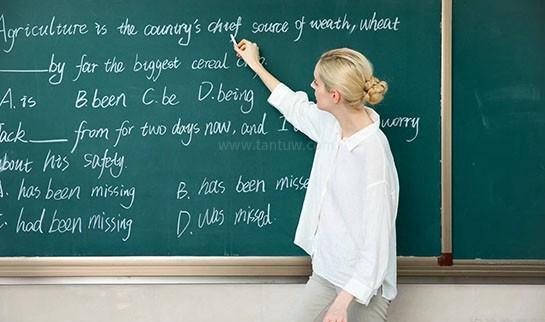 Agriculture is the country's chief source of weath, wheat
____by far the biggest cereal
A. is B. been C. be D. being
Jack____ from for two days now, and I worry
about his safety.
A. has been missing B. has been misse
C. had been missing D. was missed.
www.tantuw.com